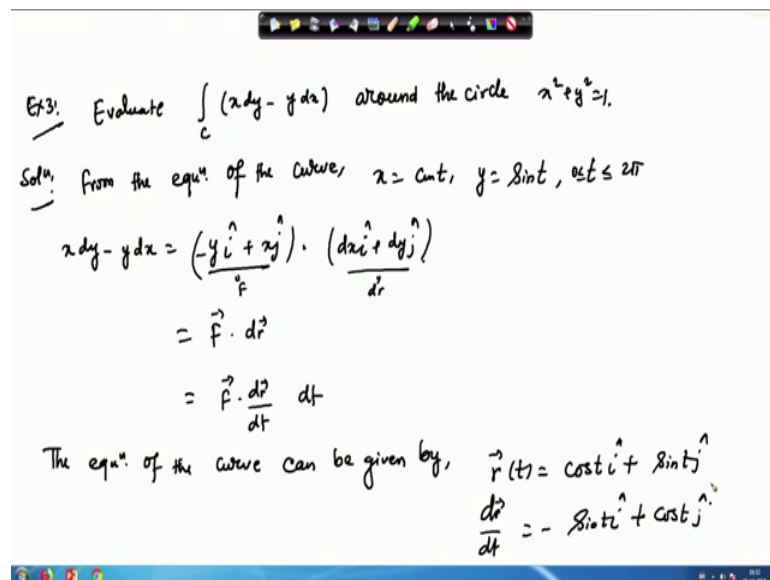 Ex3: Evaluate ∫_C (x dy - y dx) around the circle x² + y² = 1.
Solⁿ: From the equⁿ. of the curve, x = cost, y = sint, 0 ≤ t ≤ 2π
x dy - y dx = (-y î + x ĵ) · (dx î + dy ĵ)
f⃗ dr⃗
= f⃗ · dr⃗
= f⃗ · dr⃗/dt dt
The equⁿ. of the curve can be given by, r⃗(t) = cost î + sint ĵ
dr⃗/dt = - sint î + cost ĵ.